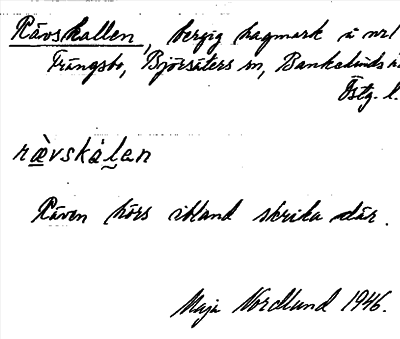 Rävskallen, bergig hagmark å nr 1
Frängsbo, Björsäters sn, Bankekinds h.
Östg. l.
rævskálan
Räven hörs ibland skrika där.
Maja Nordlund 1946.